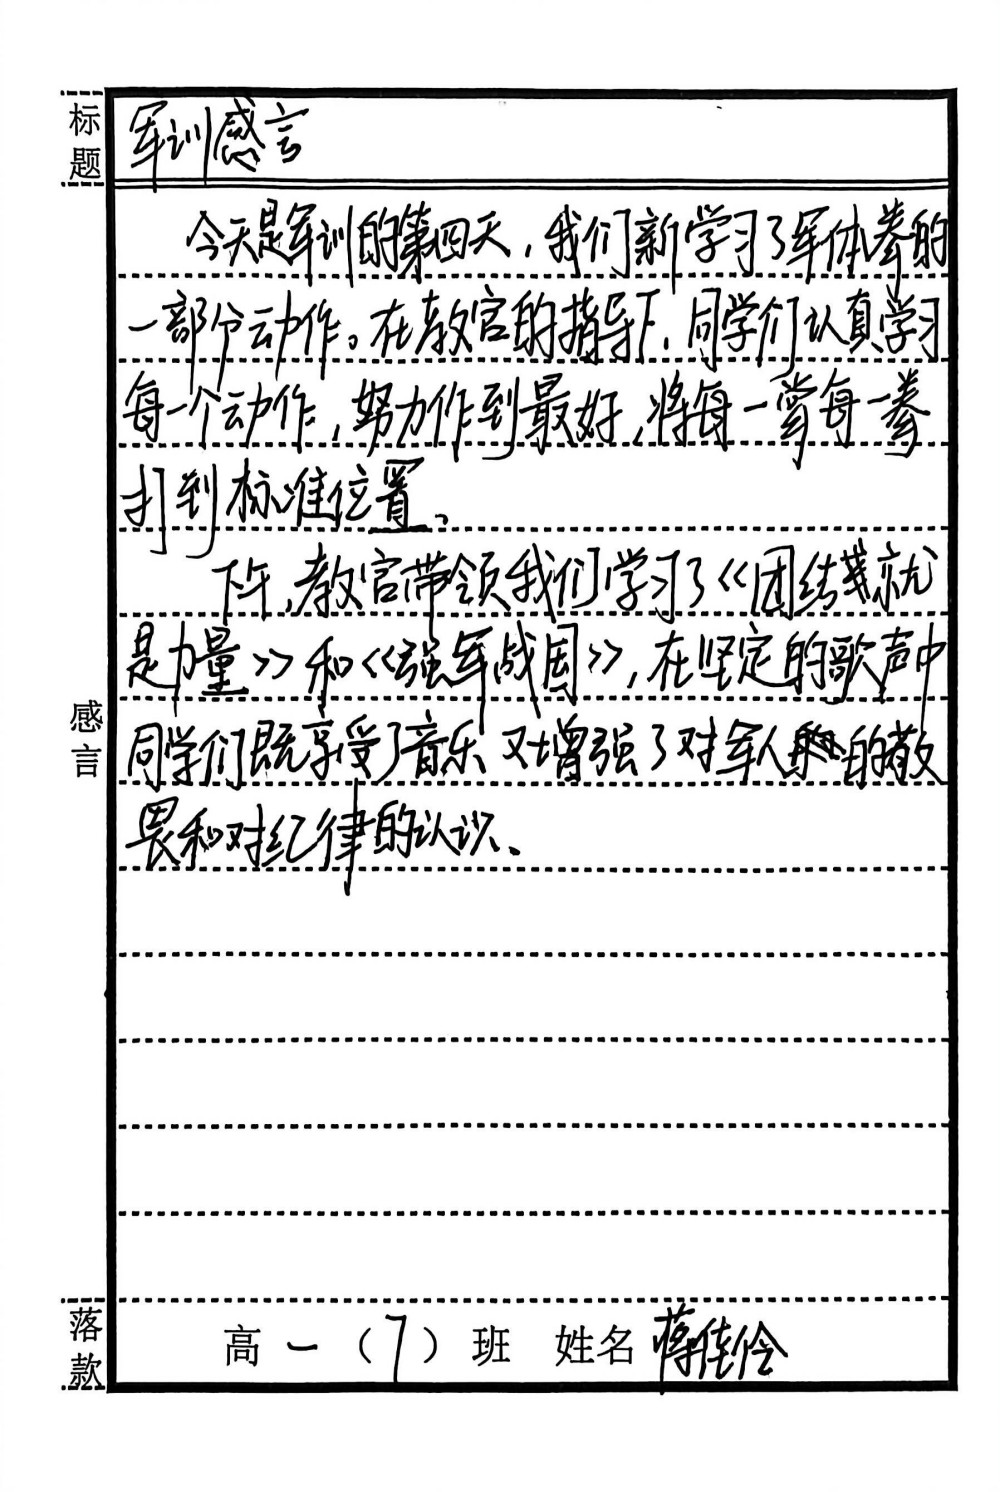 标题
军训感言
今天是军训的第四天，我们新学习了军体拳的
一部分动作。在教官的指导下，同学们认真学习
每一个动作，努力作到最好，将每一掌每一拳
打到标准位置。
下午，教官带领我们学习了《团结就
是力量》和《强军战国》，在坚定的歌声中
同学们既享受了音乐又增强了对军人的敬
畏和对纪律的认识。
感言
落款
高一（7）班 姓名 蒋佳伶